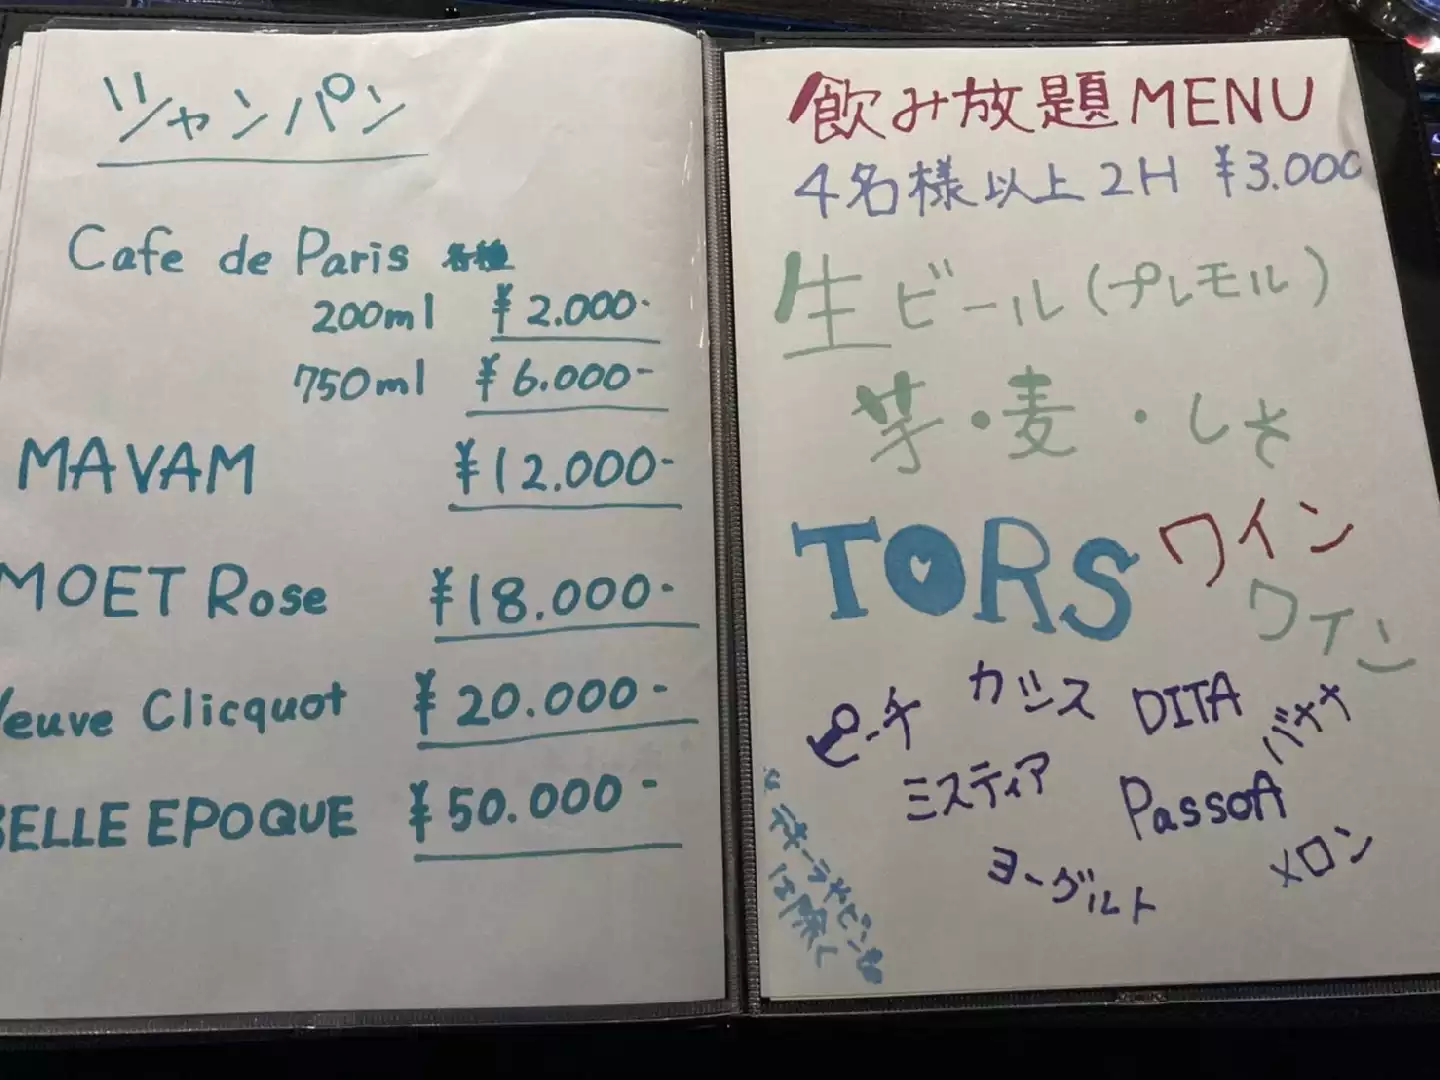 シャンパン
Cafe de Paris 各種
200ml ¥2.000-
750ml ¥6.000-
MAVAM ¥12.000-
MOET Rose ¥18.000-
Veuve Clicquot ¥20.000-
BELLE EPOQUE ¥50.000-
飲み放題MENU
4名様以上2H ¥3.000
生ビール(プレモル)
芋・麦・しそ
TORS ワイン
ワイン
ピーチ カシス DITA バナナ
ミスティア PassoA
ヨーグルト メロン
テキーラやビン
は除く